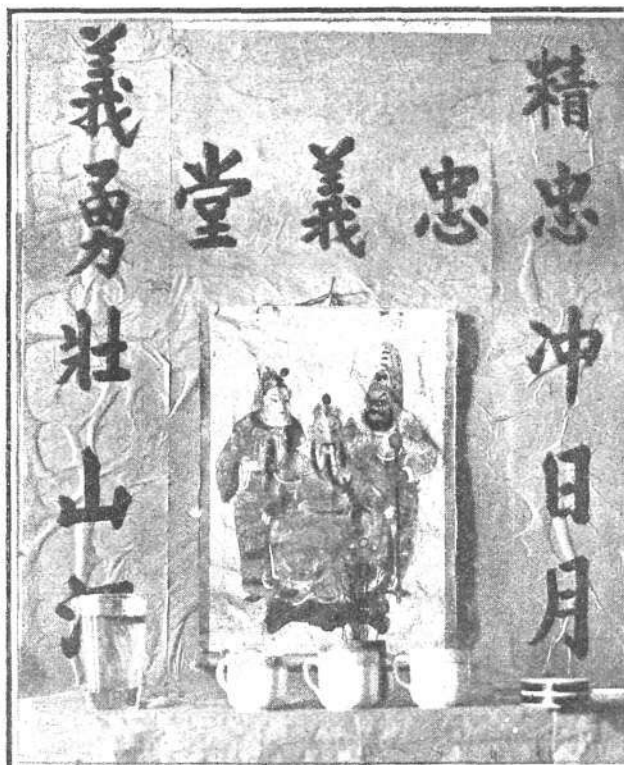 忠義堂
精忠冲日月
義勇壯山